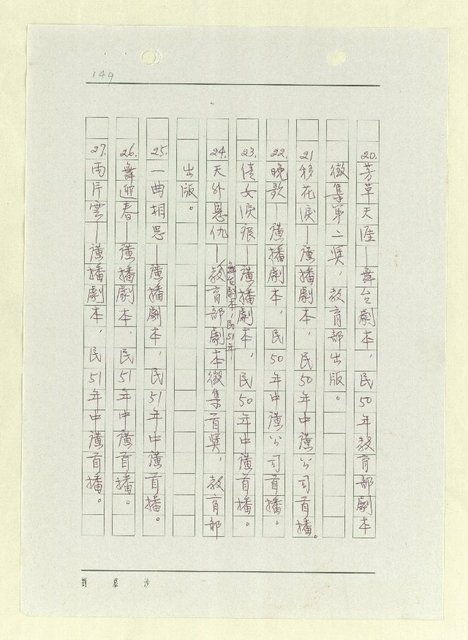 149
20.芳草天涯—舞台劇本,民50年教育部劇本
徵集第二獎,教育部出版。
21.移花淚—廣播劇本,民50年中廣公司首播。
22.晚歌—廣播劇本,民50年中廣公司首播。
23.倩女淚痕—廣播劇本,民50年中廣首播。
舞台劇本,民51年
24.天外恩仇—教育部劇本徵集首獎,教育部
出版。
25.一曲相思—廣播劇本,民51年中廣首播。
26.舞迎春—廣播劇本,民51年中廣首播。
27.兩片雲—廣播劇本,民51年中廣首播。